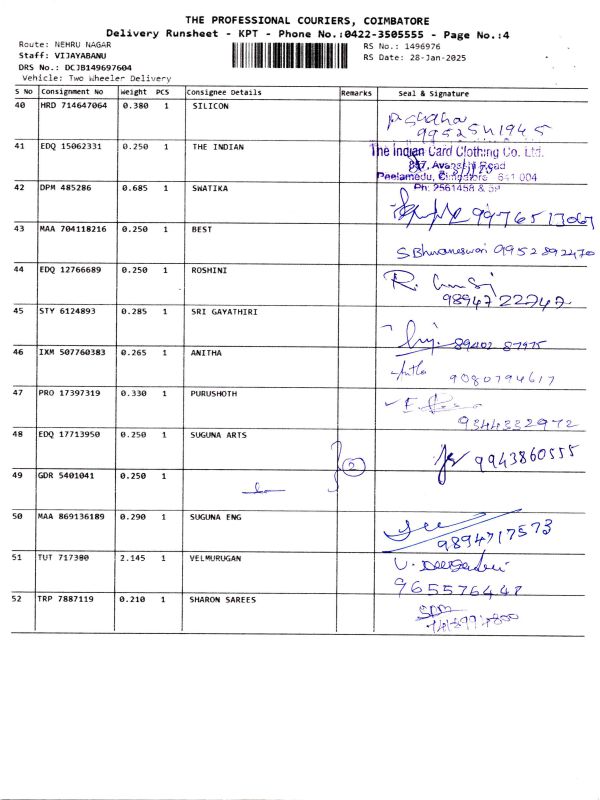 THE PROFESSIONAL COURIERS, COIMBATORE
Delivery Runsheet - KPT - Phone No.:0422-3505555 - Page No.:4
Route: NEHRU NAGAR
Staff: VIJAYABANU
DRS No.: DCJB149697604
Vehicle: Two Wheeler Delivery
RS No.: 1496976
RS Date: 28-Jan-2025
S No Consignment No Weight PCS Consignee Details Remarks Seal & Signature
40 HRD 714647064 0.380 1 SILICON
9952541945
41 EDQ 15062331 0.250 1 THE INDIAN
The Indian Card Clothing Co. Ltd.
Road
Peelamedu, 641 004
Ph: 2561458 &
42 DPM 485286 0.685 1 SWATIKA
9976513067
43 MAA 704118216 0.250 1 BEST
S Bhuvaneswari 9952892470
44 EDQ 12766689 0.250 1 ROSHINI
R.
9894722747
45 STY 6124893 0.285 1 SRI GAYATHIRI
89402 87975
46 IXM 507760383 0.265 1 ANITHA
9080794617
47 PRO 17397319 0.330 1 PURUSHOTH
9344332972
48 EDQ 17713950 0.250 1 SUGUNA ARTS
2 9943860555
49 GDR 5401041 0.250 1
50 MAA 869136189 0.290 1 SUGUNA ENG
9894717573
51 TUT 717380 2.145 1 VELMURUGAN
965576447
52 TRP 7887119 0.210 1 SHARON SAREES